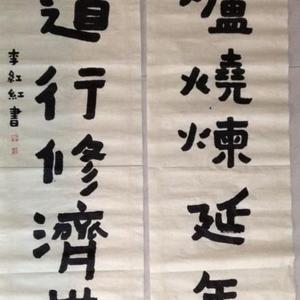 爐燒煉延年
道行修濟世
李紅紅書